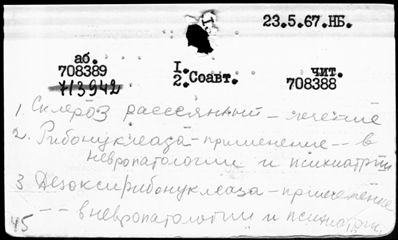 23.5.67.НБ.
аб. I. чит.
708389 2.Соавт. 708388
713942
1 Склероз рассеянный - лечение
2. Рибонуклеаза - применение -- в
невропатологии и психиатрии
3 Дезоксирибонуклеаза - применение
-- в невропатологии и психиатрии
45